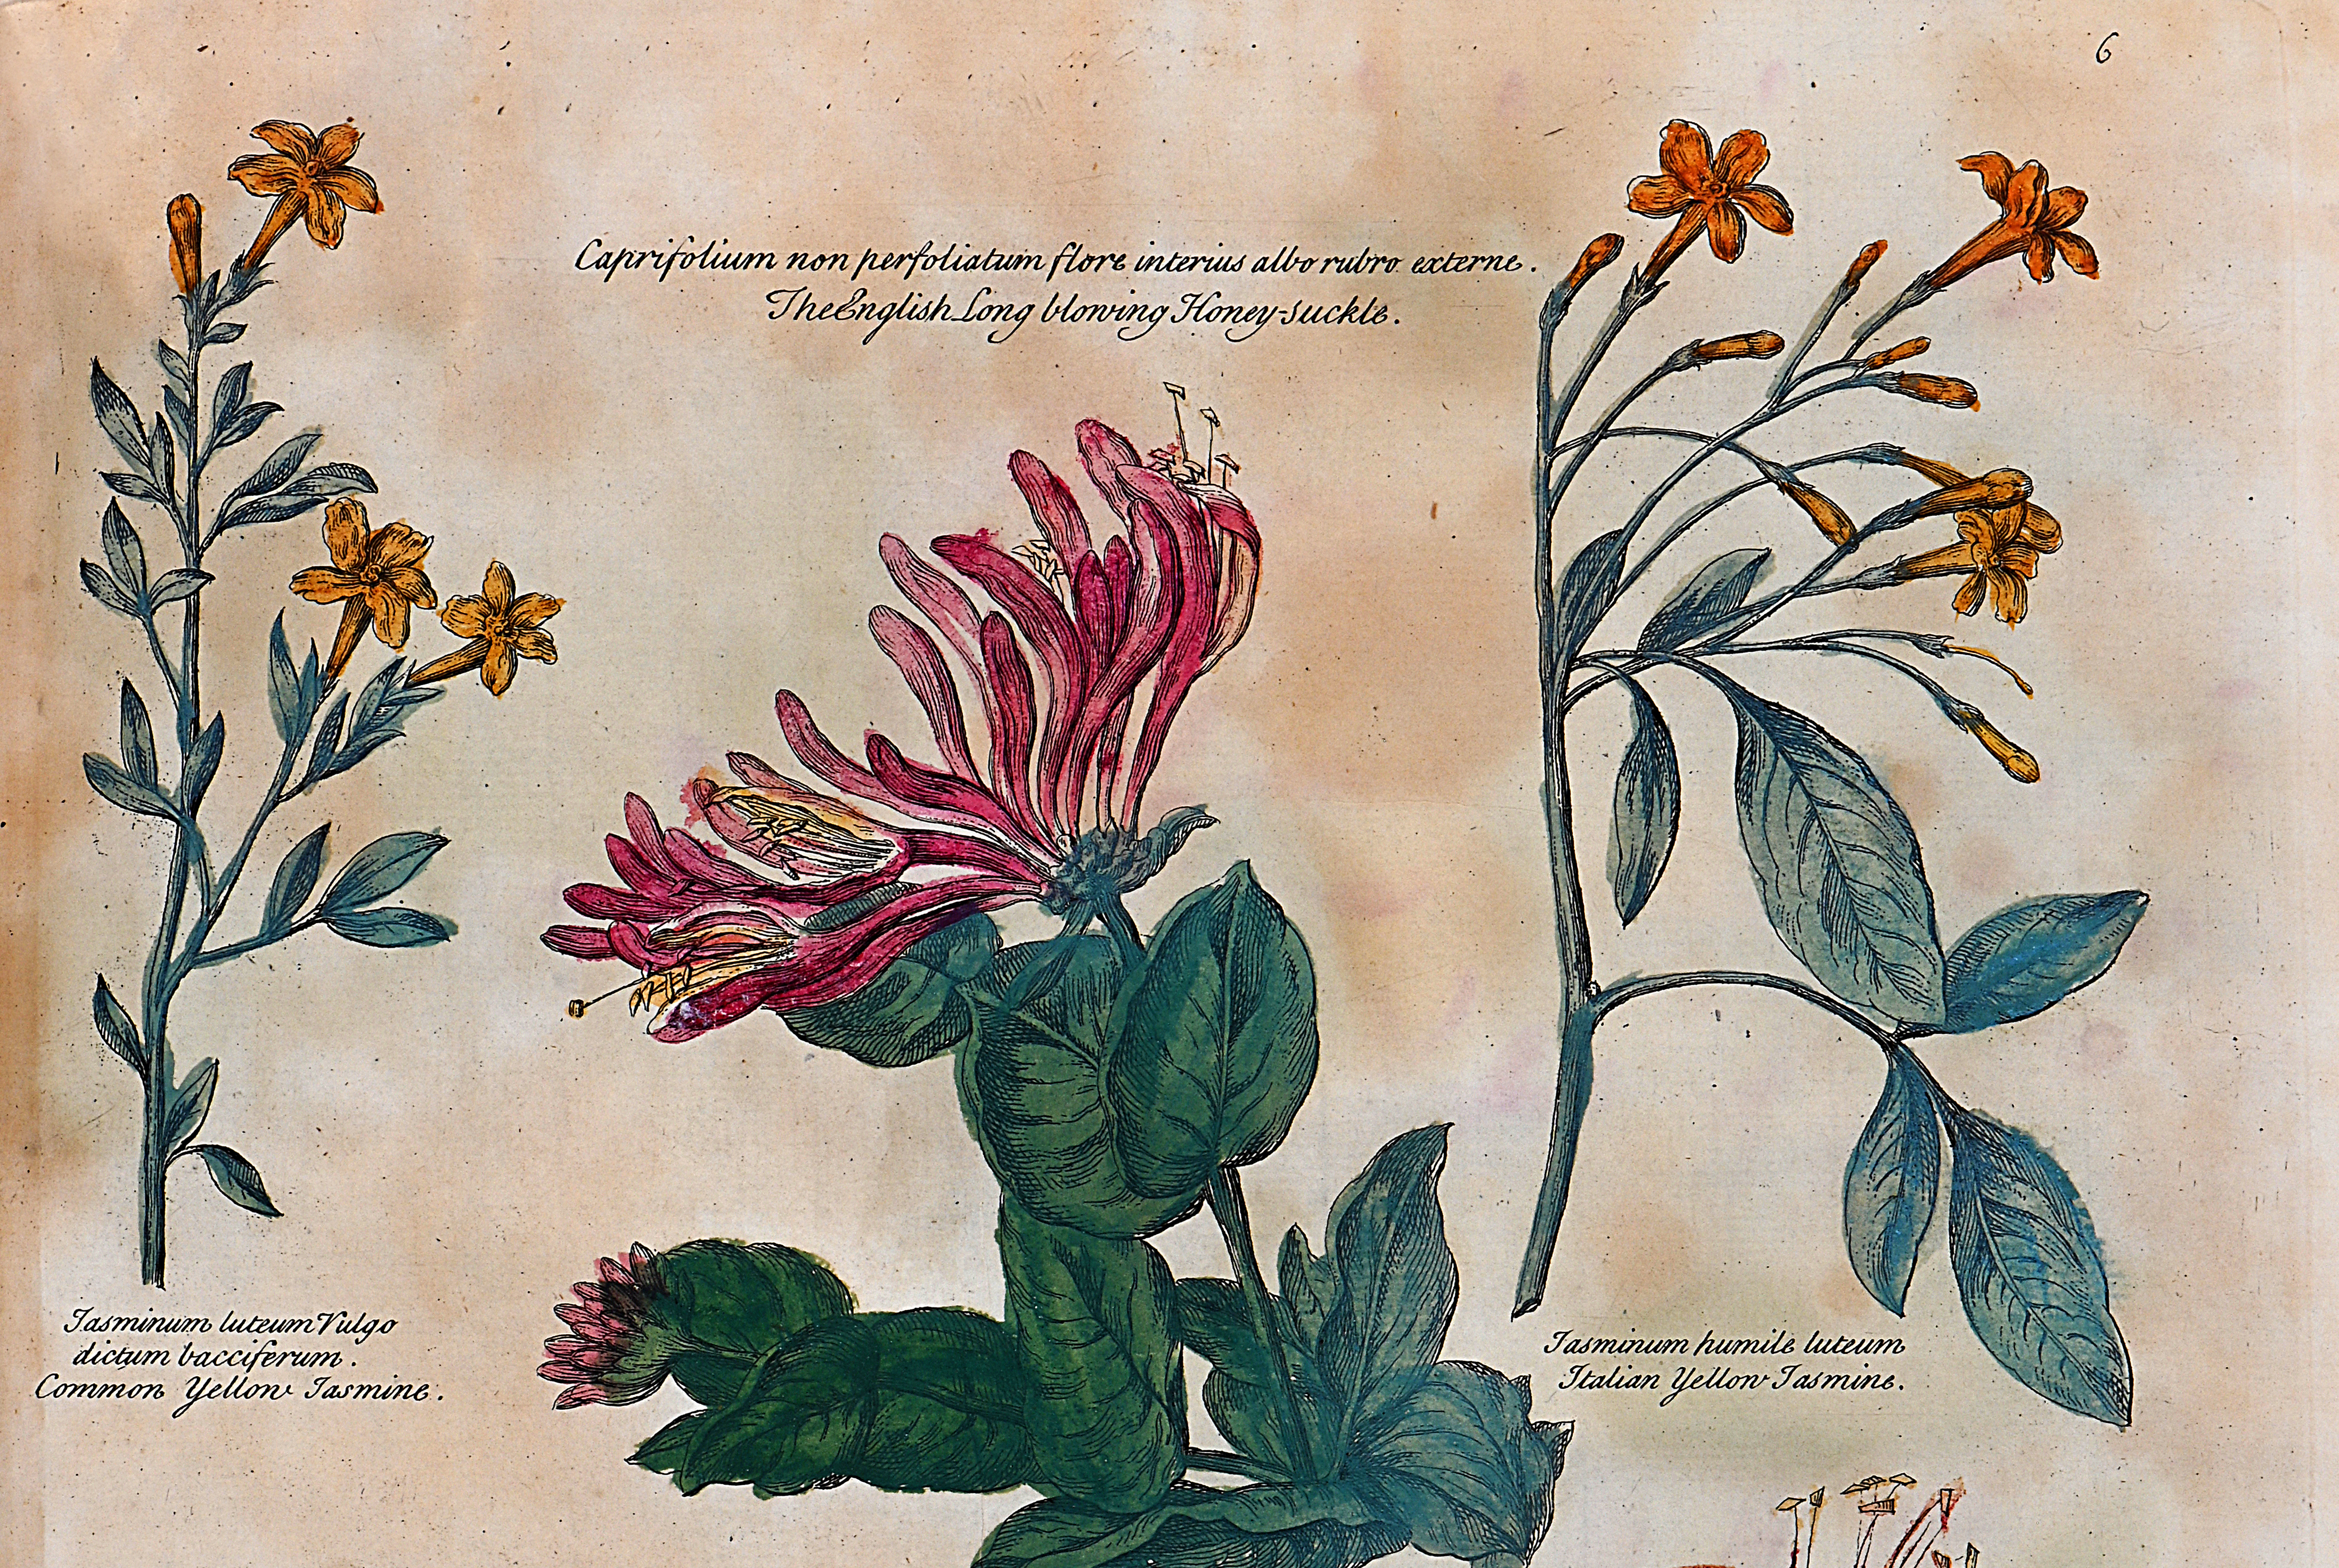 6
Caprifolium non perfoliatum flore interius albo rubro externe.
The English Long blowing Honey-suckle.
Jasminum luteum Vulgo
dictum bacciferum.
Common Yellow Jasmine.
Jasminum humile luteum
Italian Yellow Jasmine.